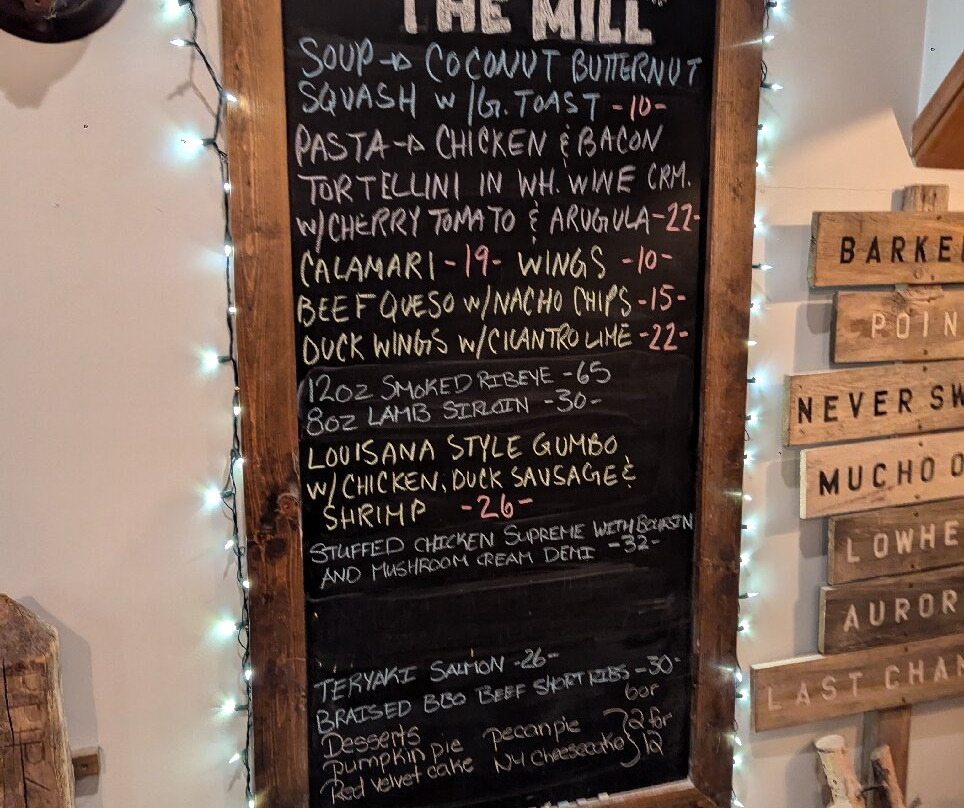 THE MILL
SOUP → COCONUT BUTTERNUT
SQUASH W/G. TOAST -10-
PASTA → CHICKEN & BACON
TORTELLINI IN WH. WINE CRM.
W/CHERRY TOMATO & ARUGULA -22-
CALAMARI -19- WINGS -10-
BEEF QUESO W/NACHO CHIPS -15-
DUCK WINGS W/CILANTRO LIME -22-
12OZ SMOKED RIBEYE -65
8OZ LAMB SIRLOIN -30-
LOUISANA STYLE GUMBO
W/CHICKEN, DUCK SAUSAGE &
SHRIMP -26-
STUFFED CHICKEN SUPREME WITH BOURSIN
AND MUSHROOM CREAM DEMI -32-
TERYAKI SALMON -26-
BRAISED BBQ BEEF SHORT RIBS -30-
Desserts 6 or
pumpkin pie pecan pie 2 for
Red velvet cake NY Cheesecake 12
BARKE
POIN
NEVER SW
MUCHO O
LOWHE
AUROR
LAST CHAN